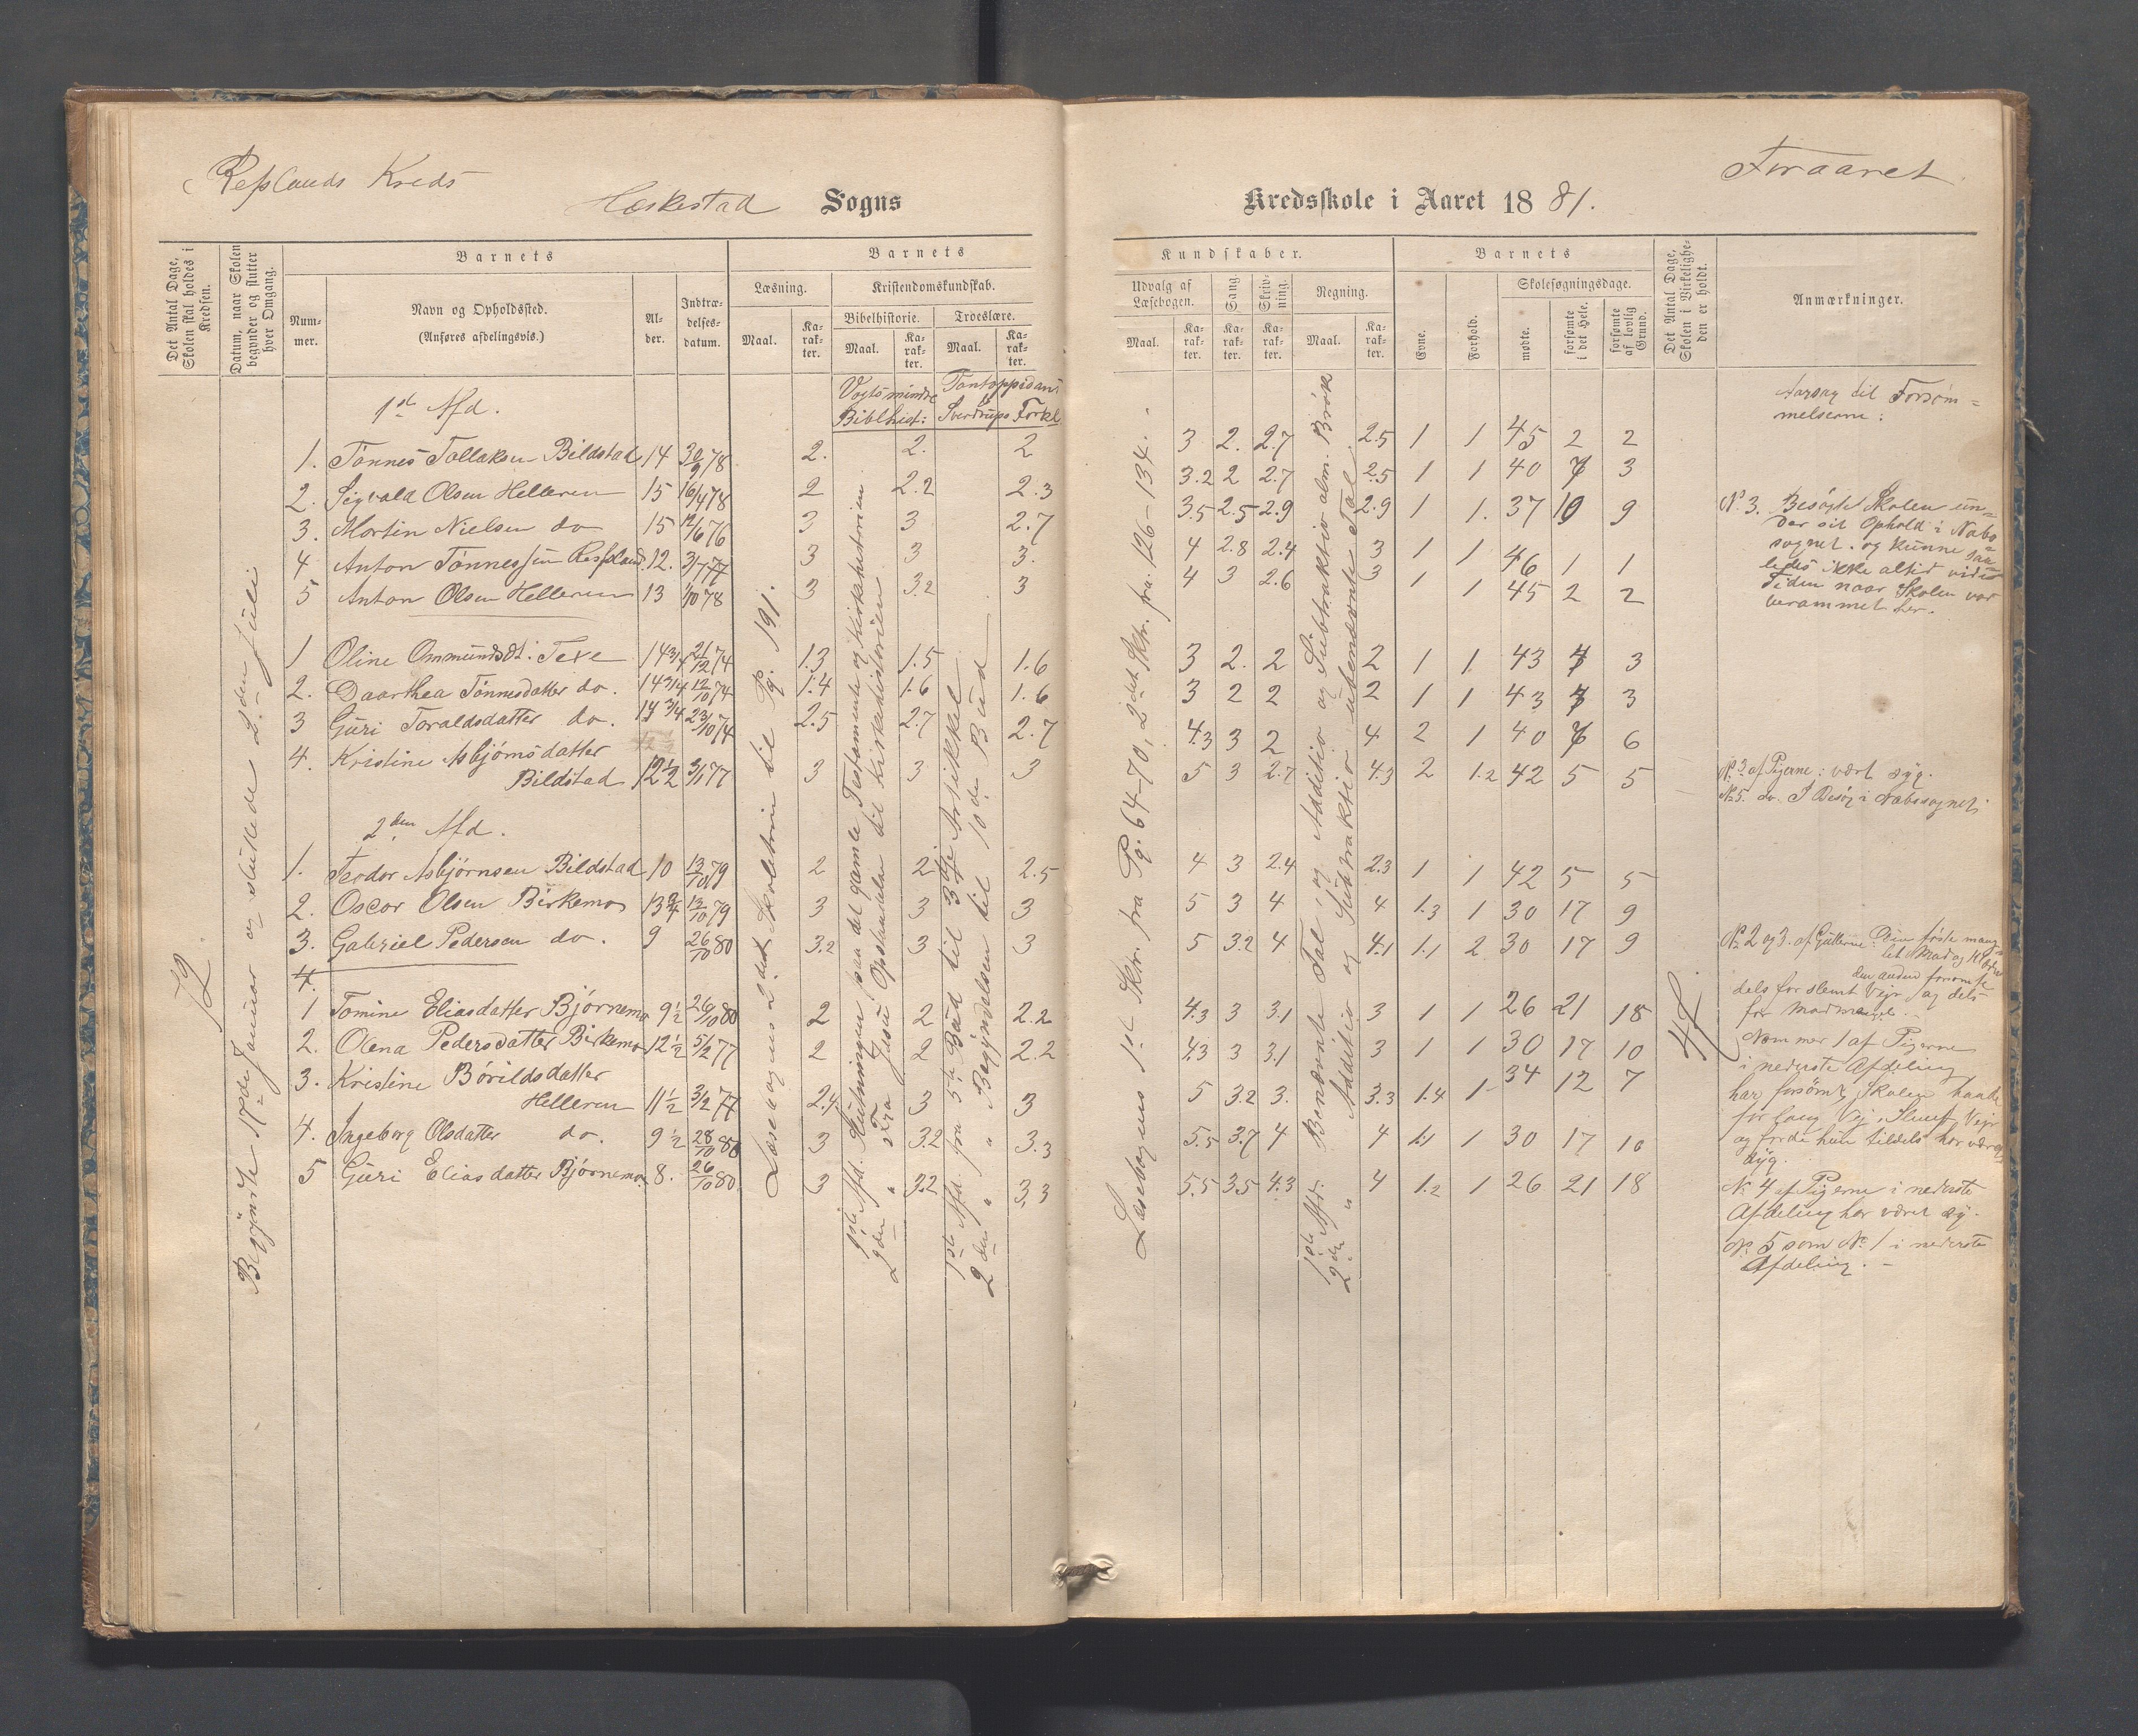 Refslands Kreds
Heskestad Sogns
Kredsskole i Aaret 1881.
Foraaret
Det Antal Dage, Skolen skal holdes i Kredsen.
Datum, naar Skolen begynder og slutter hver Omgang.
Barnets
Barnets
Num-
mer.
Navn og Opholdssted.
(Anføres afdelingsvis.)
Al-
der.
Indtræ-
delses-
datum.
Læsning.
Kristendomskundskab.
Bibelhistorie.
Troeslære.
Maal.
Ka-
rak-
ter.
Maal.
Ka-
rak-
ter.
Maal.
Ka-
rak-
ter.
Kundskaber.
Barnets
Udvalg af
Læsebogen.
Sang
Skriv-
ning.
Regning.
Maal.
Ka-
rak-
ter.
Ka-
rak-
ter.
Ka-
rak-
ter.
Maal.
Ka-
rak-
ter.
Evne.
Forhold.
Skolesøgningsdage.
mødte.
forsømte
i det Hele.
forsømte
af lovlig
Grund.
Det Antal Dage,
Skolen i Virkelighe-
den er holdt.
Anmærkninger.
72
Begyndte 17de Januar og sluttede 2den Juli
Læsebogens 2det Skoletrin til Pg. 191.
Vogts mindre
Biblhist:
Pontoppidans
Sverdrups Forkl
1ste Afd. Slutningen paa det gamle Testamente og Kirkehistorien
2den " Fra Jesu Opstandelse til Kirkehistorien
1ste Afd. fra 5te Bud til 3die Artikkel
2den " " Begyndelsen til 10de Bud
Læsebogens 1st Sktr. fra Pg. 64-70, 2det Sktr. fra 126-134.
1ste Afd. Benævnte Tal, og Additio og Subtraktio alm. Brøk
2den " Additio og Subtraktio ubenævnte Tal
48
1st Afd.
1. Tønnes Tollaksen Bildstad 14 30/9 78 2. 2. 2 3 2. 2.7 2.5 1 1 45 2 2
2. Sigvald Olsen Helleren 15 16/4 78 2 2.2 2.3 3.2 2 2.7 2.5 1 1 40 7 3
3. Martin Nielsen do 15 12/6 76 3 3 2.7 3.5 2.5 2.9 2.9 1 1. 37 10 9
4 Anton Tønnessen Refsland 12. 3/7 77 3 3 3. 4 2.8 2.4 3 1 1 46 1 1
5 Anton Olsen Helleren 13 1/10 78 3 3.2 3 4 3 2.6 3 1 1 45 2 2
1 Oline Ommundsdt. Texe 14 3/4 21/12 74 1.3 1.5 1.6 3 2. 2 2 1 1 43 4 3
2. Daarthea Tønnesdatter do. 14 3/4 12/10 74 1.4 1.6 1.6 3 2 2 2 1 1 43 3 3
3 Guri Toraldsdatter do. 14 3/4 23/10 74 2.5 2.7 2.7 4.3 3 2 4 2 1 40 7 6
4. Kristine Asbjørnsdatter
Bildstad 12 1/2 3/1 77 3 3 3 5 3 2.7 4.3 2 1.2 42 5 5
2den Afd.
1. Teodor Asbjørnsen Bildstad 10 13/10 79 2 2 2.5 4 3 2.4 2.3 1 1 42 5 5
2. Oscar Olsen Birkemo 13 3/4 13/10 79 3 3 3 5 3 4 4 1.3 1 30 17 9
3. Gabriel Pedersen do. 9 26/10 80 3.2 3 3 5 3.2 4 4.1 1.1 2 30 17 9
4.
1 Tomine Eliasdatter Bjørnemo 9 1/2 26/10 80 2 2 2.2 4.3 3 3.1 3 1 1 26 21 18
2. Olena Pedersdatter Birkemo 12 1/2 5/2 77 2 2 2.2 4.3 3 3.1 3 1 1 30 17 10
3. Kristine Børildsdatter
Helleren 11 1/2 3/2 77 2.4 3 3 5 3.2 3. 3.3 1.4 1 34 12 7
4. Ingeborg Olsdatter do. 9 1/2 28/10 80 3 3.2 3.3 5.5 3.7 4 4 1.1 1 30 17 10
5 Guri Eliasdatter Bjørnemo 8. 26/10 80 3 3.2 3.3 5.5 3.5 4.3 4 1.2 1 26 21 18
Aarsag til Forsøm-
melserne:
No 3. Besøgte Skolen un-
der sit Ophold i Nabo
sognet. og kunne saa-
ledes ikke altid vide
Tiden naar Skolen var
berammet her.
No 3 af Pigerne: vært syg.
No 5. do. I Besøg i Nabosognet
No 2 og 3. af Gutterne: Den første mang-
let Mad og Klæder
den anden forsømte
dels for slemt Vejr og dels
for Madmangel.
Nommer 1 af Pigerne
i nederste Afdeling
har forsømt Skolen
for lang Vej, slemt Vejr
og fordi hun tildels har været
syg.
No 4 af Pigerne i nederste
Afdeling har været syg.
No 5 som No 1 i nederste
Afdeling.